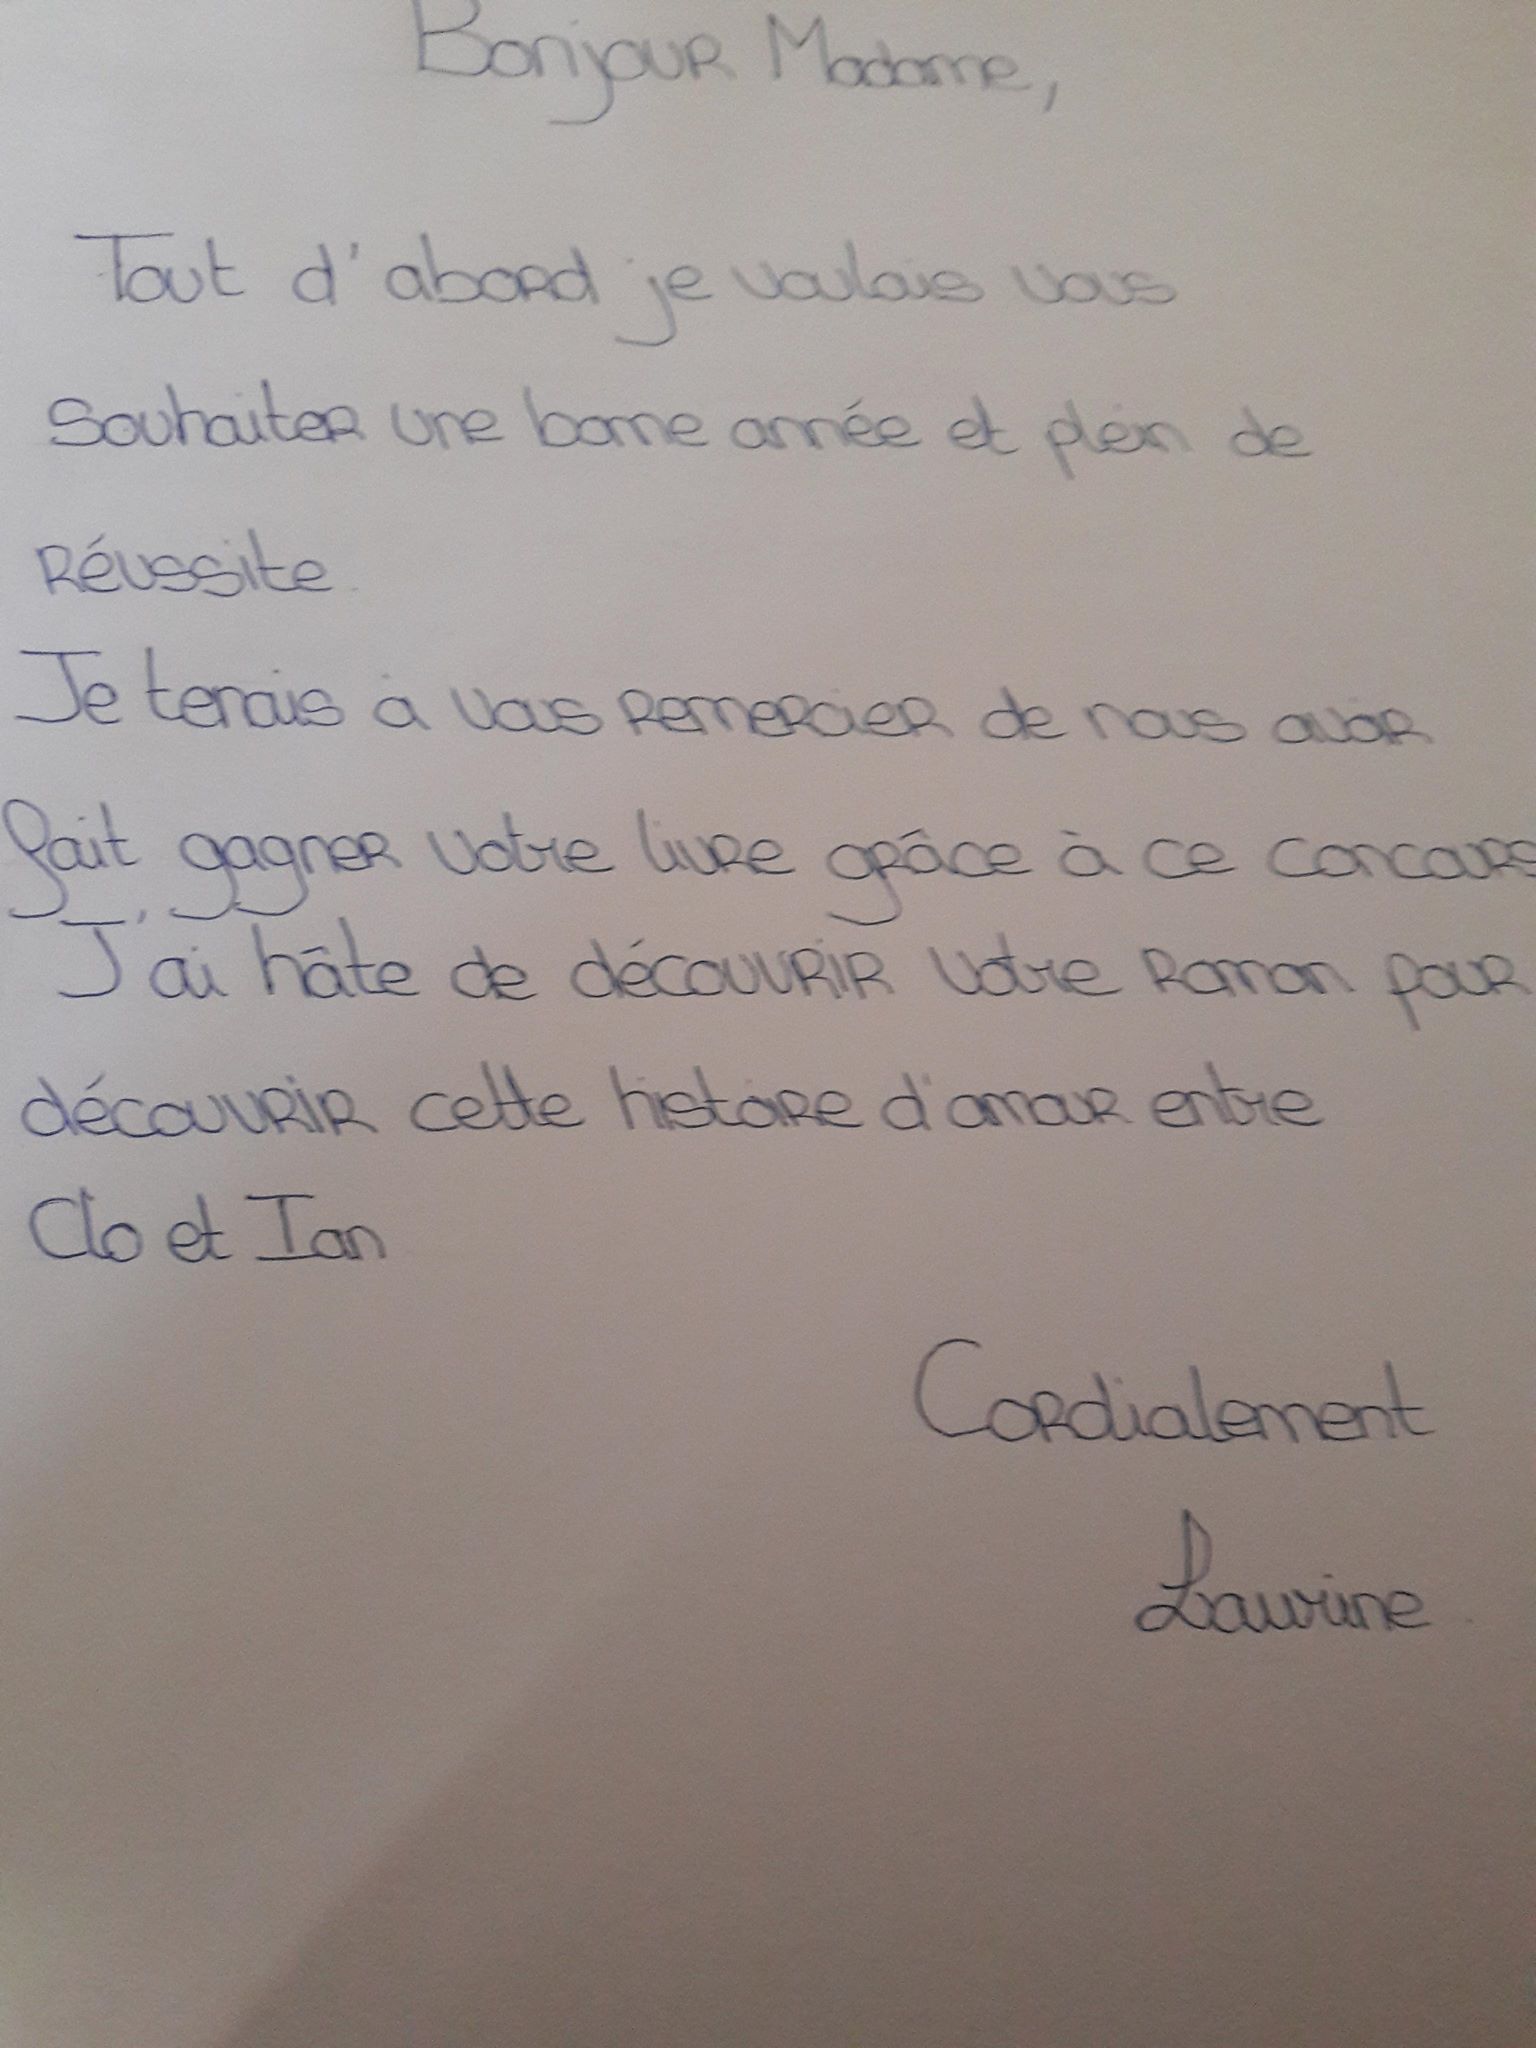 Bonjour Madame,
Tout d'abord je voulais vous
souhaiter une bonne année et plein de
réussite.
Je tenais à vous remercier de nous avoir
fait gagner votre livre grâce à ce concours
J'ai hâte de découvrir votre roman pour
découvrir cette histoire d'amour entre
Clo et Ian
Cordialement
Laurine